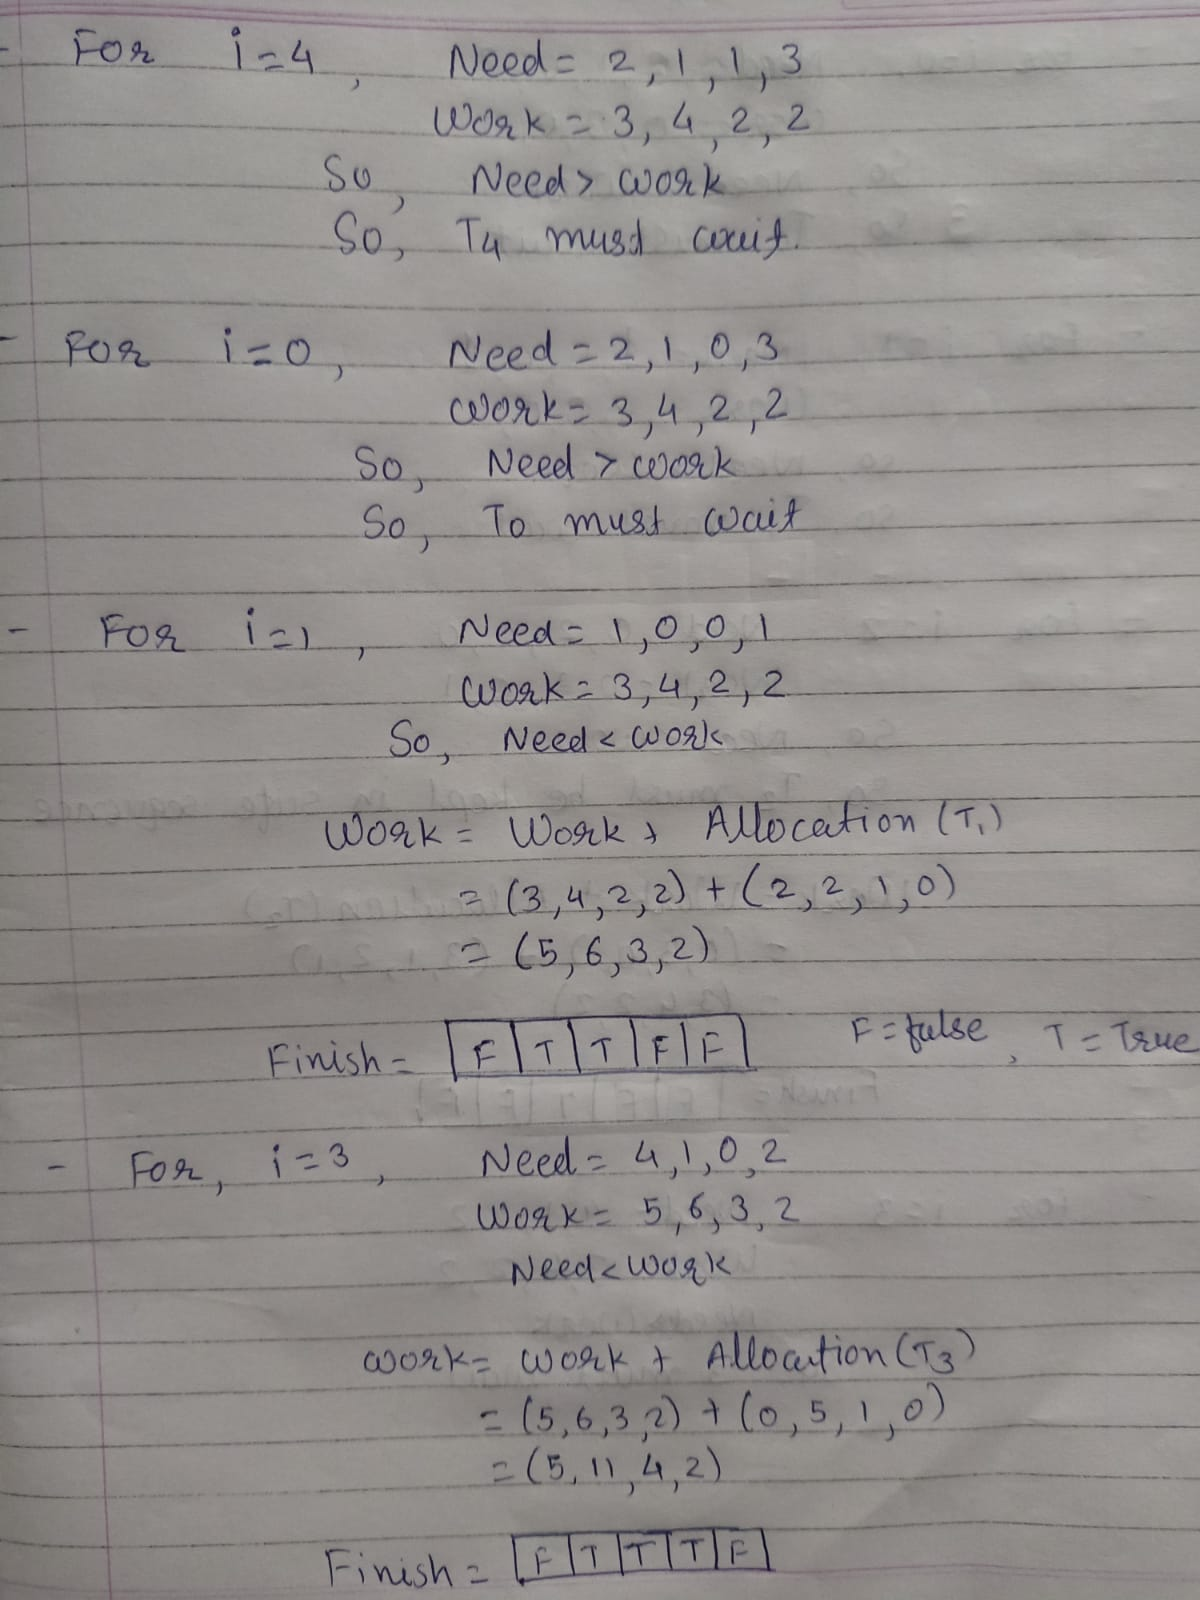 - For i=4, Need = 2, 1, 1, 3
Work = 3, 4, 2, 2
So, Need > work
So, T4 must wait.
- For i=0, Need = 2, 1, 0, 3
Work = 3, 4, 2, 2
So, Need > work
So, To must wait
- For i=1, Need = 1, 0, 0, 1
Work = 3, 4, 2, 2
So, Need < work
Work = Work + Allocation (T1)
= (3, 4, 2, 2) + (2, 2, 1, 0)
= (5, 6, 3, 2)
Finish = |F|T|T|F|F| F = false, T = True
- For, i=3, Need = 4, 1, 0, 2
Work = 5, 6, 3, 2
Need < Work
work = work + Allocation (T3)
= (5, 6, 3, 2) + (0, 5, 1, 0)
= (5, 11, 4, 2)
Finish = |F|T|T|T|F|